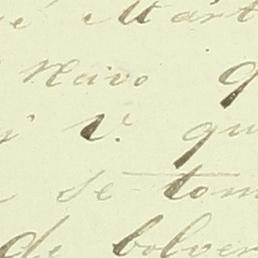 é Mart
Neivo q
y V. qu
se tom
de bolver